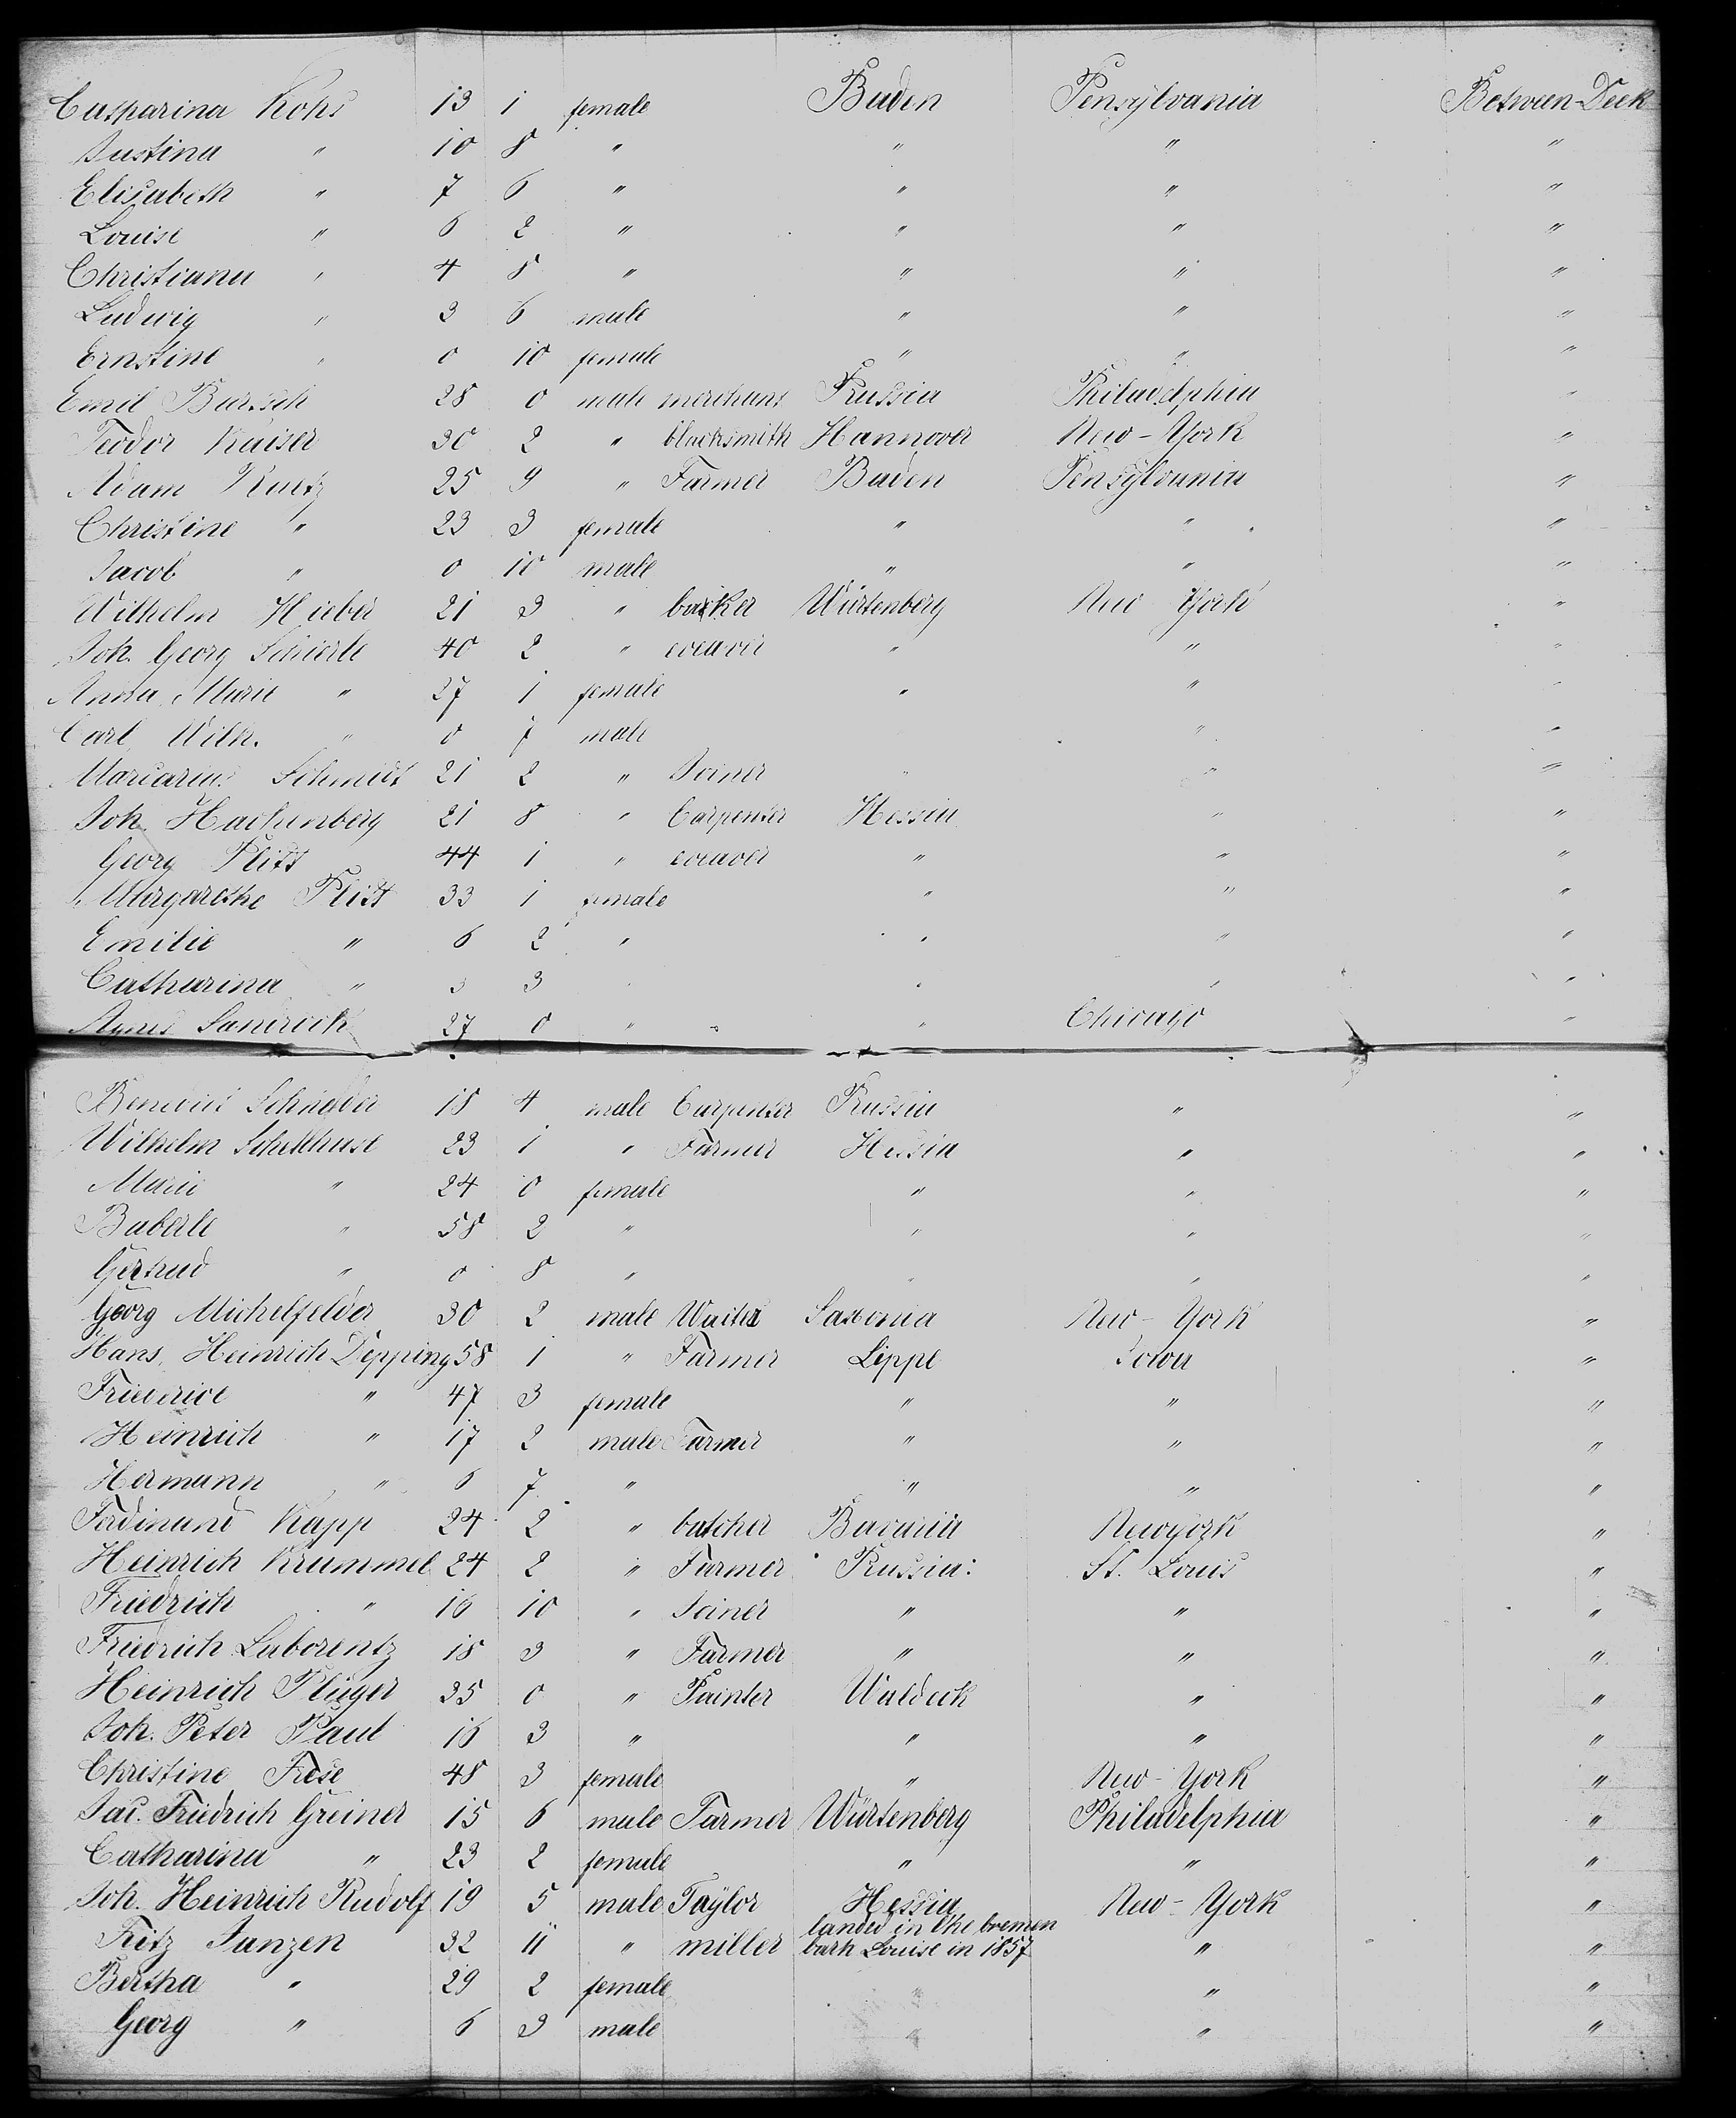 Catharina Kohs 13 1 female Baden Pensylvania Between-Deck
Justina " 10 8 " " " "
Elisabeth " 7 6 " " " "
Louise " 6 2 " " " "
Christiana " 4 8 " " " "
Ludwig " 3 6 male " " "
Ernstine " 0 10 female " " "
Emil Bartsch 28 0 male merchant Prussia Philadelphia "
Teodor Kaiser 30 2 " blacksmith Hannover New-York "
Adam Ruetz 25 9 " Farmer Baden Pensylvania "
Christine " 23 3 female " " "
Jacob " 0 10 male " " "
Wilhelm Hieber 21 3 " backer Würtenberg New York "
Joh. Georg Schierle 40 2 " weaver " " "
Anna Marie " 27 1 female " " "
Carl Wilh. " 0 7 male " "
Schmidt 21 2 " Joiner " " "
Joh. Hachenberg 21 8 " Carpenter Hessia " "
Georg Plitt 44 1 " weaver " " "
Margarethe Plitt 33 1 female " " "
Emilie " 6 2 " " " "
Catharina " 3 3 " " " "
Agnes 27 0 " " " Chicago "
18 4 male Carpenter Prussia " "
Wilhelm Schellhase 23 1 " Farmer Hessia " "
Marie " 24 0 female " " "
Baberle " 58 2 " " " "
Gertrud " 0 8 " " " "
Georg Michelfelder 30 2 male Waiter Saxonia New-York "
Hans, Heinrich Depping 58 1 " Farmer Lippe Iowa "
Friederice " 47 3 female " " "
Heinrich " 17 2 male Farmer " " "
Hermann " 6 7 " " " "
Ferdinand Kapp 24 2 " butcher Bavaria Newyork "
Heinrich Krummel 24 2 " Farmer Prussia: St. Louis "
Friedrich " 16 10 " Joiner " " "
Friedrich Laborentz 18 3 " Farmer " " "
Heinrich Plüger 35 0 " Painter Waldeck " "
Joh. Peter Paul 16 3 " " " "
Christine Frese 48 3 female " New-York "
Jac. Friedrich Greiner 15 6 male Farmer Würtenberg Philadelphia "
Catharina " 23 2 female " " "
Joh. Heinrich Rudolf 19 5 male Taylor Hessia New-York "
Fritz Janzen 32 11 " miller landed in the bremen bark Louise in 1857 " "
Bertha " 29 2 female " " "
Georg " 6 3 male " " "